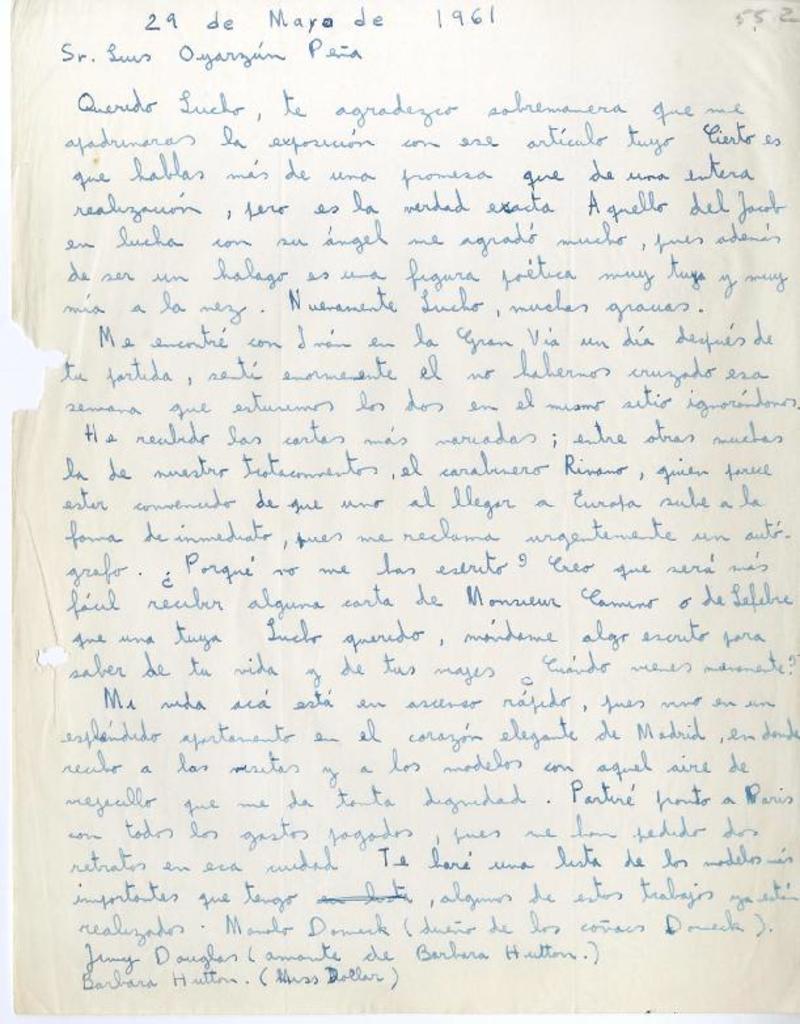 29 de Mayo de 1961
552
Sr. Luis Oyarzún Peña
Querido Lucho, te agradezco sobremanera que me
apadrinaras la exposición con ese artículo tuyo Cierto es
que hablas más de una promesa que de una entera
realización, pero es la verdad exacta Aquello del Jacob
en lucha con su ángel me agradó mucho, pues además
de ser un halago es una figura poética muy tuya y muy
mía a la vez. Nuevamente Lucho, muchas gracias.
Me encontré con Iván en la Gran Via un día después de
tu partida, sentí enormemente el no habernos cruzado esa
semana que estuvimos los dos en el mismo sitio ignorándonos.
He recibido las cartas más variadas; entre otras muchas
la de nuestro trotaconventos, el carabinero Rivano, quien parece
estar convencido de que uno al llegar a Europa sube a la
fama de inmediato, pues me reclama urgentemente un autó-
grafo. ¿Porqué no me has escrito? Creo que será más
fácil recibir alguna carta de Monsieur Camino o de Lefebre
que una tuya Lucho querido, mándame algo escrito para
saber de tu vida y de tus viajes ¿Cuándo vienes nuevamente?
Mi vida acá está en ascenso rápido, pues vivo en un
espléndido apartamento en el corazón elegante de Madrid, en donde
recibo a las visitas y a los modelos con aquel aire de
viejecillo que me da tanta dignidad. Partiré pronto a Paris
con todos los gastos pagados, pues me han pedido dos
retratos en esa ciudad Te haré una lista de los modelos más
importantes que tengo en lista, algunos de estos trabajos ya están
realizados. Manolo Domeck (dueño de los coñacs Domeck).
Jimy Douglas (amante de Barbara Hutton.)
Barbara Hutton. (Miss Dollar)